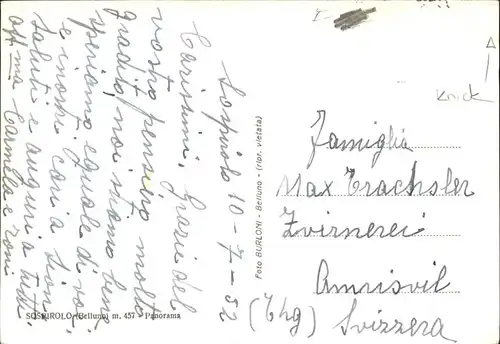 Sospirolo 10-7-82
Carissimi, Grazie del
vostro pensiero molto
gradito, noi stiamo bene
speriamo eguale di voi,
e i nostri cari a Sion
saluti e auguri a tutti
aff ma Carmela e Toni
SOSPIROLO (Belluno) m. 457 - Panorama
Foto BURLONI - Belluno - (ripr. vietata)
Knick
Famiglia
Max Trachsler
Zvirnerei
Amrisvil
(Thg)
Svizzera